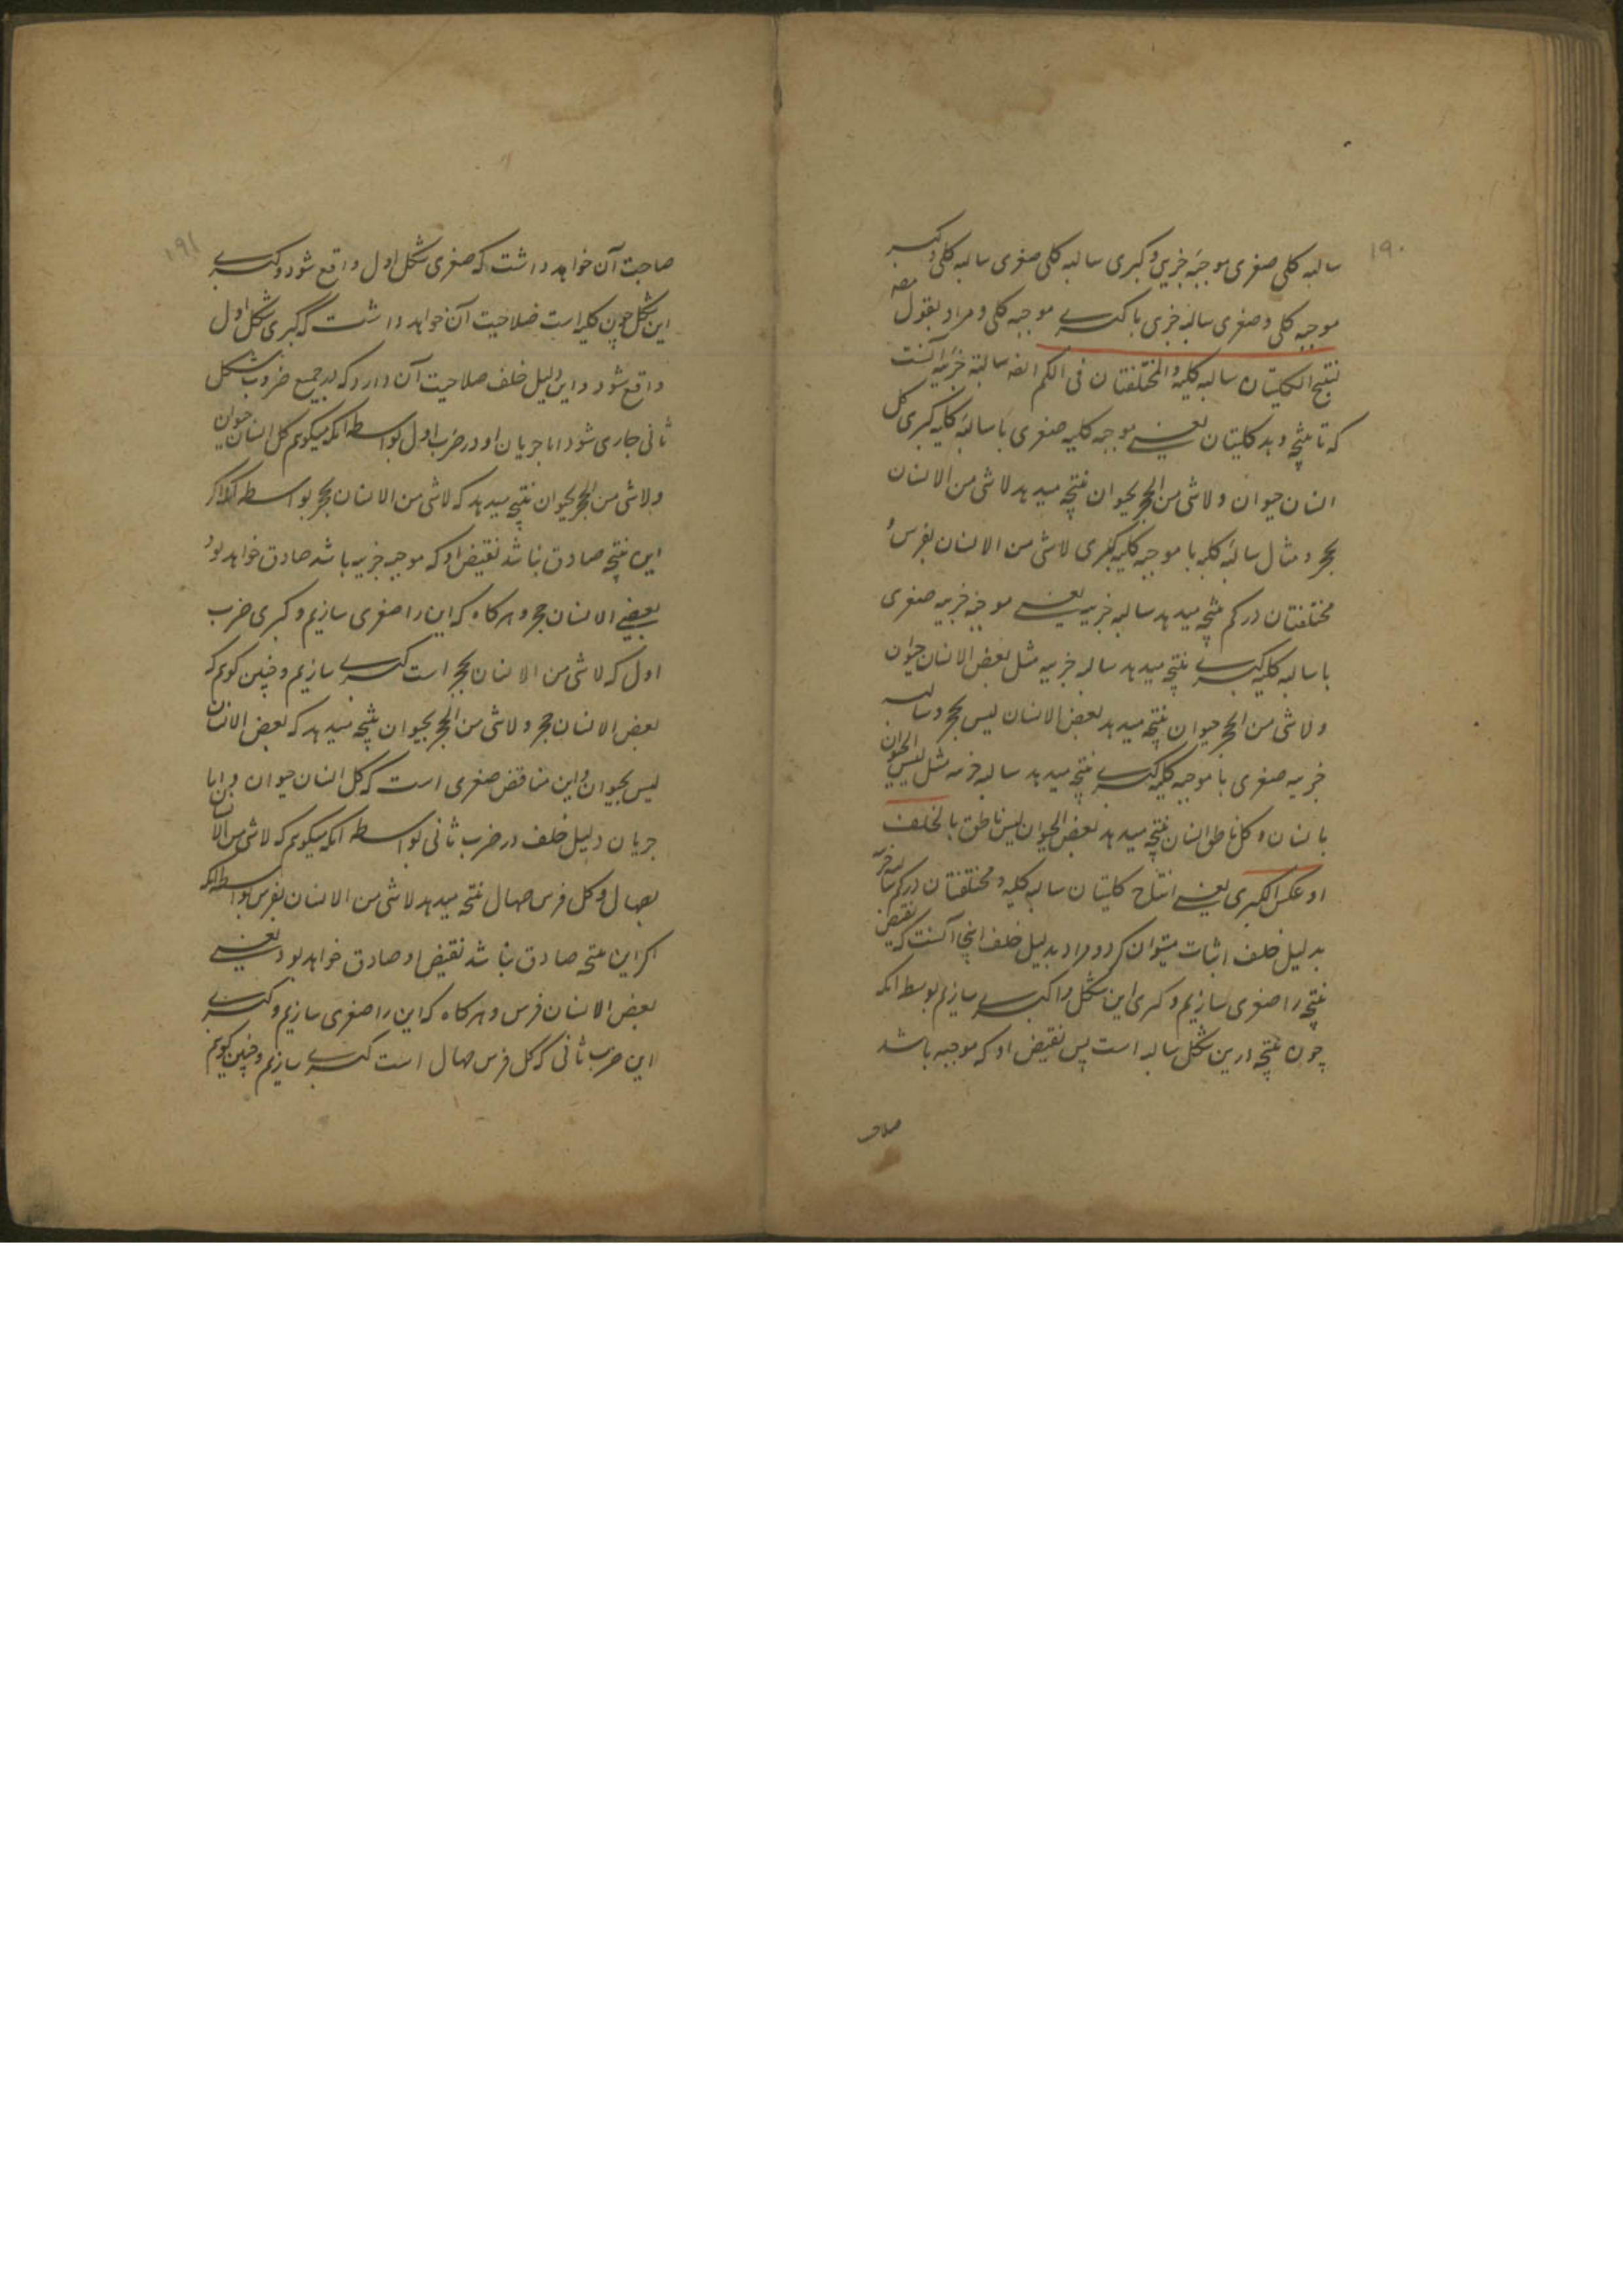 ۱۹۰
سالبه کلی صغری موجبه جزیی و کبری سالبه کلی صغری سالبه کلی و کبری
موجبه کلی و صغری سالبه جزی با کبری موجبه کلی و مراد بقول مصه
لنتیج الکلیتان سالبه کلیه و المختلفتان فی الکم ایضا سالبة جزئیه آنست
که تا نتیجه دهد کلیتان یعنی موجبه کلیه صغری با سالبه کلیه کبری کل
انسان حیوان و لاشی من الحجر بحیوان نتیجه میدهد لاشی من الانسان
بحجر و مثال سالبه کلیه با موجبه کلیه کبری لاشی من الانسان بفرس و
مختلفتان در کم نتیجه میدهد سالبه جزییه یعنی موجبه جزییه صغری
با سالبه کلیه کبری نتیجه میدهد سالبه جزییه مثل بعض الانسان حیوان
و لاشی من الحجر حیوان نتیجه میدهد بعض الانسان لیس بحجر و سالبه
جزییه صغری با موجبه کلیه کبری نتیجه میدهد سالبه جزییه مثل لیس الحیوان
بانسان و کل ناطق انسان نتیجه میدهد بعض الحیوان لیس ناطق بالخلف
او عکس الکبری یعنی انتاج کلیتان سالبه کلیه و مختلفتان در کم سالبه جزییه
بدلیل خلف اثبات میتوان کرد و مراد بدلیل خلف اینجا آنست که نقیض
نتیجه را صغری سازیم و کبری این شکل را کبری سازیم بوسطه انکه
چون نتیجه درین شکل سالبه است پس نقیض او که موجبه باشد
صلاحت
۱۹۱
صلاحیت آن خواهد داشت که صغری شکل اول واقع شود و کبری
این شکل چون کلیه است صلاحیت آن خواهد داشت که کبری شکل اول
واقع شود و این دلیل خلف صلاحیت آن دارد که در جمیع ضروب شکل
ثانی جاری شود اما جریان او در ضرب اول بواسطه انکه میکویم کل انسان حیوان
و لاشی من الحجر بحیوان نتیجه میدهد که لاشی من الانسان بحجر بواسطه انکه اکر
این نتیجه صادق نباشد نقیض او که موجبه جزییه باشد صادق خواهد بود
بعضی الانسان حجر و هرکاه که این را صغری سازیم و کبری ضرب
اول که لاشی من الانسان بحجر است کبری سازیم و چنین کویم که
بعض الانسان حجر و لاشی من الحجر بحیوان نتیجه میدهد که بعض الانسان
لیس بحیوان و این مناقض صغری است که کل انسان حیوان و اما
جریان دلیل خلف در ضرب ثانی بواسطه انکه میکویم که لاشی من الانسان
بصهال و کل فرس صهال نتیجه میدهد لاشی من الانسان بفرس بواسطه انکه
اکر این نتیجه صادق نباشد نقیض او صادق خواهد بود یعنی
بعض الانسان فرس و هرکاه که این را صغری سازیم و کبری
این ضرب ثانی که کل فرس صهال است کبری سازیم و چنین کویم